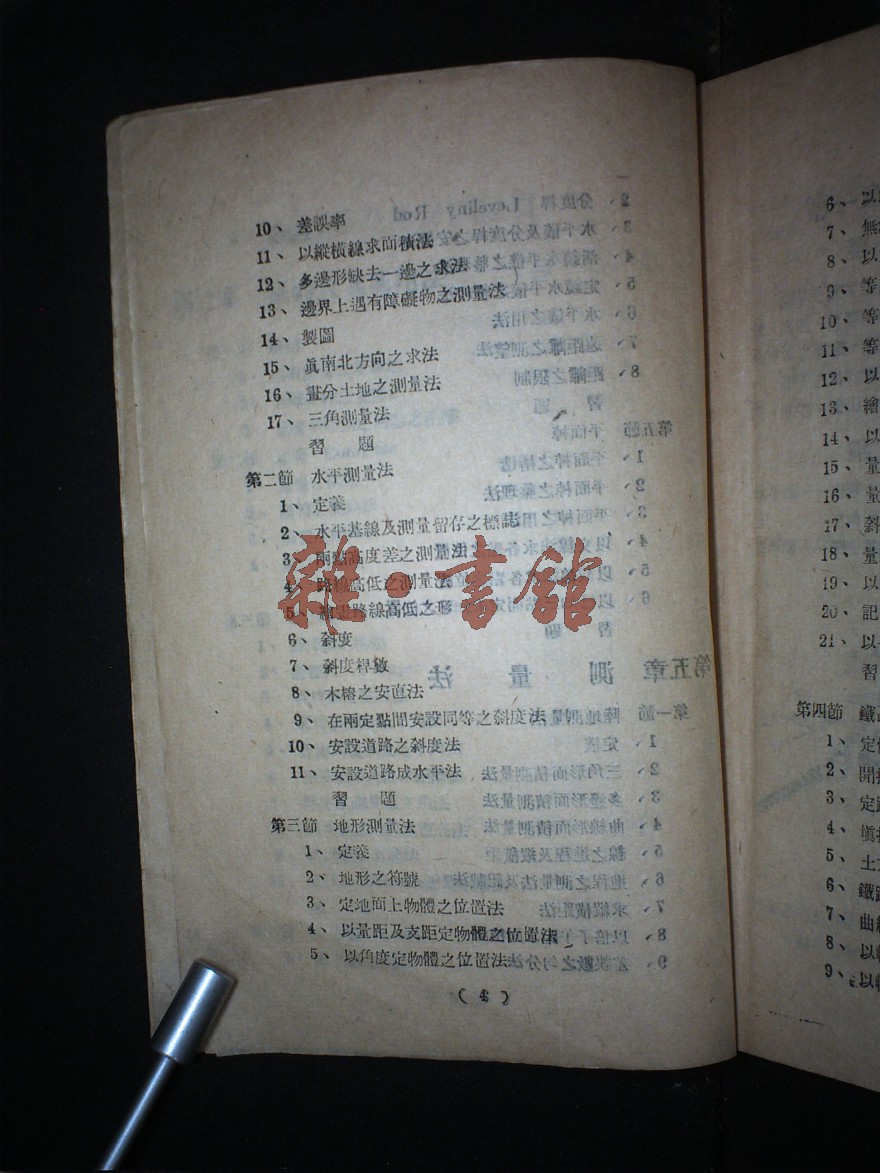 10、差誤率
11、以縱橫線求面積法
12、多邊形缺去一邊之求法
13、邊界上遇有障礙物之測量法
14、製圖
15、眞南北方向之求法
16、畫分土地之測量法
17、三角測量法
習　題
第二節　水平測量法
1、定義
2、水平基線及測量留存之標誌
3、兩點高度差之測量法
4、路線高低之測量法
5、繪定路線高低之形
6、斜度
7、斜度桿數
8、木樁之安直法
9、在兩定點間安設同等之斜度法
10、安設道路之斜度法
11、安設道路成水平法
習　題
第三節　地形測量法
1、定義
2、地形之符號
3、定地面上物體之位置法
4、以量距及支距定物體之位置法
5、以角度定物體之位置法
( 4 )
雜·書館
6、以
7、無
8、以
9、等
10、等
11、等
12、以
13、繪
14、以
15、量
16、量
17、斜
18、量
19、以
20、記
21、以
習
第四節　鐵
1、定
2、開
3、定
4、填
5、土
6、鐵
7、曲
8、以
9、以